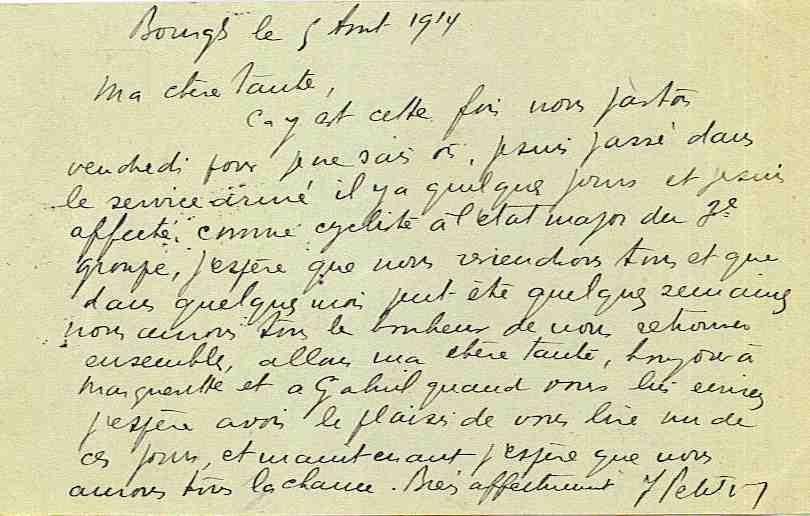 Bourges le 5 Aout 1914
Ma chère Tante,
Ca y est cette fois nous partons
vendredi pour je ne sais où, je suis passé dans
le service armé il y a quelques jours et je suis
affecté comme cycliste à l'état major du 3e
groupe, j'espère que nous reviendrons tous et que
dans quelques mois peut-être quelques semaines
nous aurons tous le bonheur de nous retrouver
ensemble, allons ma chère tante, bonjour à
Marguerite et a Gabriel quand vous lui écrirez
j'espère avoir le plaisir de vous lire un de
ces jours, et maintenant j'espère que nous
aurons tous la chance. Bien affectueusement